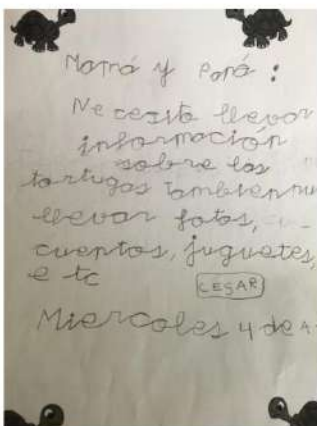 Mamá y Papá:
Necesito llevar
información
sobre las
tortugas También
llevar fotos,
cuentos, juguetes,
e tc
CÉSAR
Miercoles 4 de A